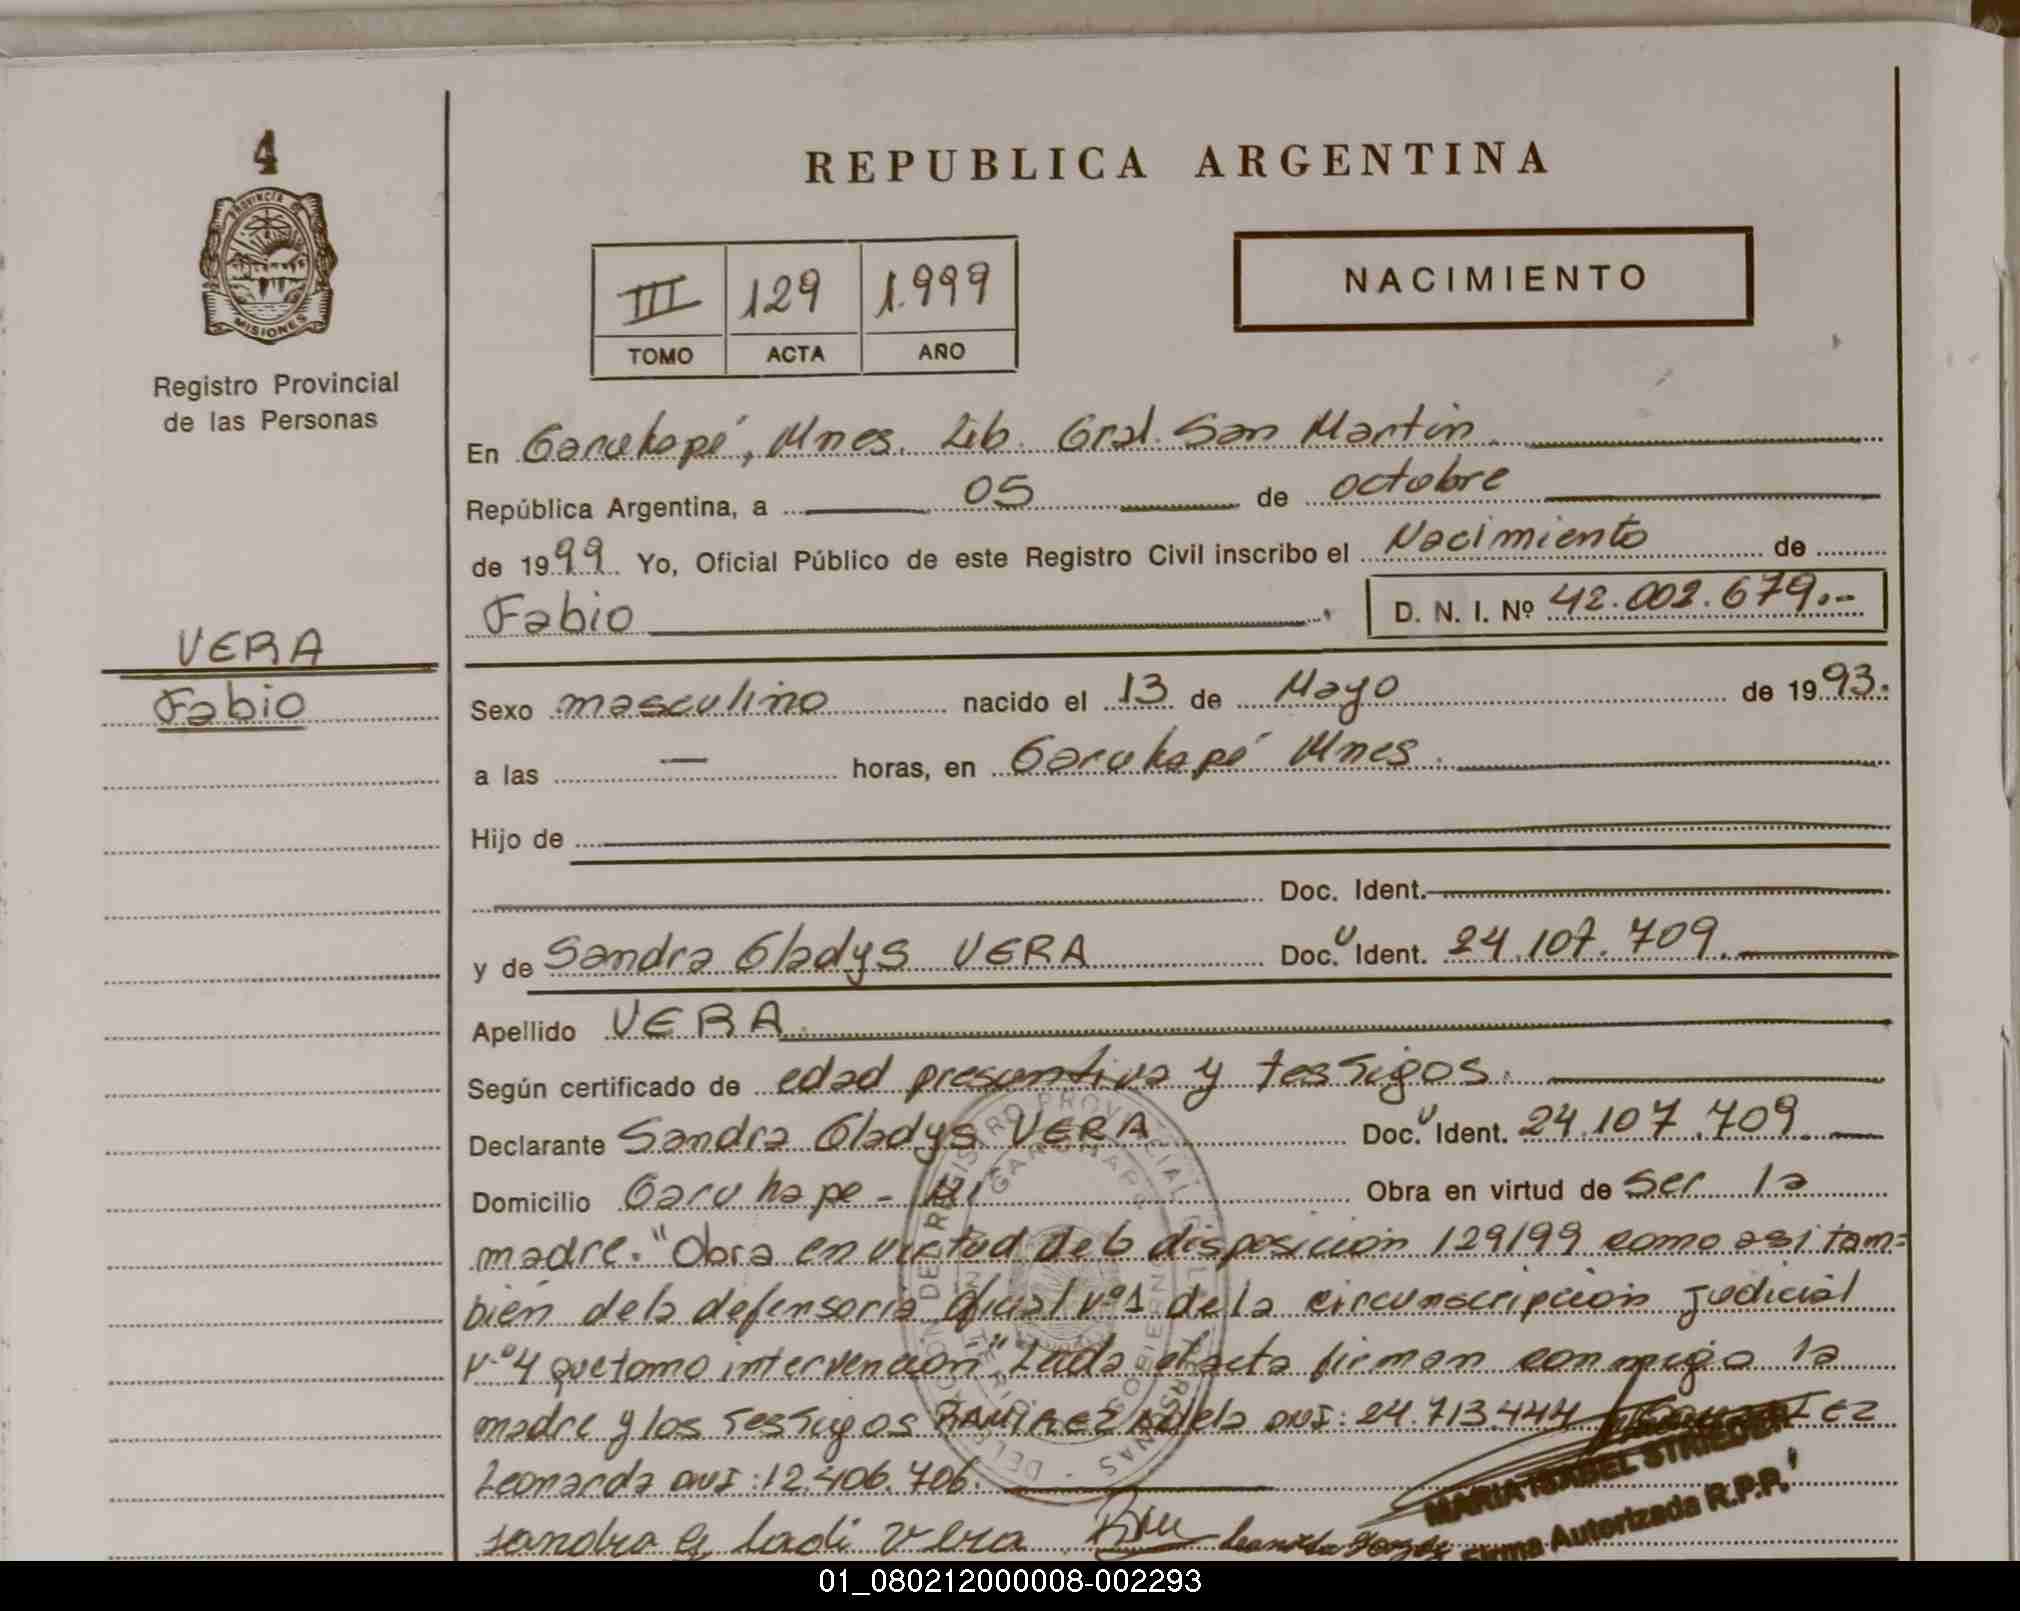 4
PROVINCIA DE
MISIONES
Registro Provincial
de las Personas
VERA
Fabio
REPUBLICA ARGENTINA
III 129 1.999
TOMO ACTA AÑO
NACIMIENTO
En Garuhapé, Mnes. Lib. Gral. San Martin.
República Argentina, a 05 de octubre
de 1999 Yo, Oficial Público de este Registro Civil inscribo el Nacimiento de
Fabio D. N. I. Nº 42.002.679.-
Sexo masculino nacido el 13 de Mayo de 1993.
a las — horas, en Garuhapé Mnes.
Hijo de
Doc. Ident.
y de Sandra Gladys VERA Doc. U Ident. 24.107.709.
Apellido VERA.
Según certificado de edad presuntiva y testigos.
Declarante Sandra Gladys VERA Doc. U Ident. 24.107.709.
Domicilio Garuhape - Obra en virtud de ser la
madre. "Obra en virtud de la disposición 129/99 como asi tam=
bién de la defensoria oficial Nº1 de la circunscripción judicial
Nº4 que tomo intervención" Leida el acta firman conmigo la
madre y los testigos RAMIREZ Adela DNI: 24.713.444
Leonarda DNI: 12.406.706.
sandra g ladi vera
MARIA ISABEL STRIEDER
Firma Autorizada R.P.P.
01_080212000008-002293